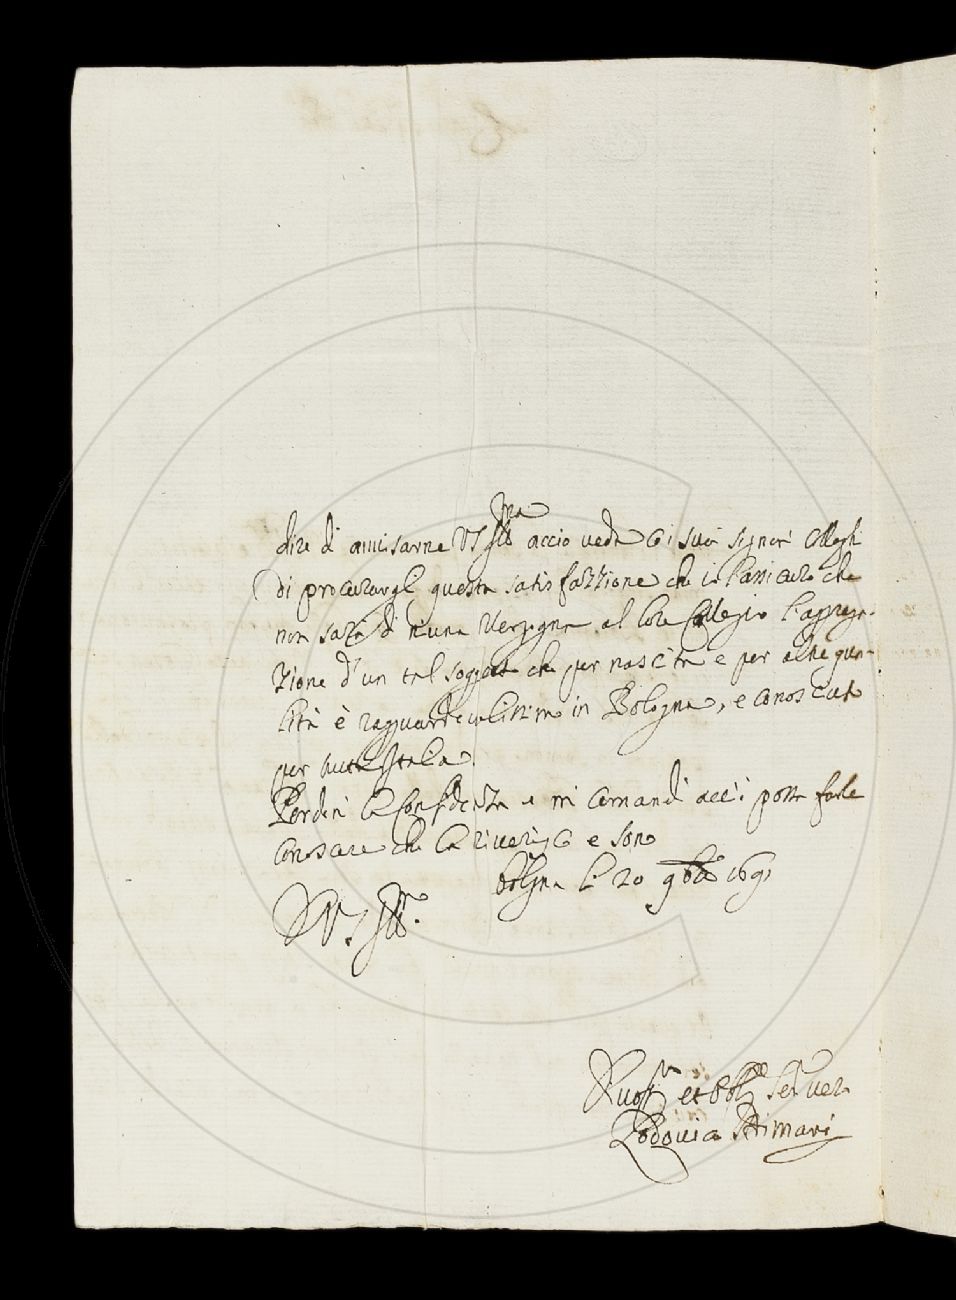 dire di avvisarne VS Ill.ma acciò veda co i suoi signori Colleghi
di procurargli questa satisfazzione che io l'assicuro che
non sarà di niuna Vergogna al loro Collegio l'aggrega-
zione d'un tal soggetto che per nascita e per altre qua-
lità è ragguardevolissimo in Bologna, e conosciuto
per tutta Italia.
Perdoni la Confidenza e mi comandi acciò possa farle
conoscere che la riverisco e sono
Bologna li 20 9bre 169
D V. S. Ill.ma
Devot.mo et Obb. Ser. Ver.
Lodovico